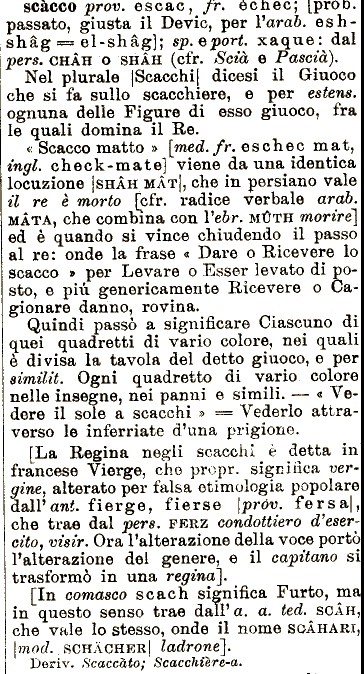 scàcco prov. escac, fr. èchec; [prob.
passato, giusta il Devic, per l'arab. esh-
shâg = el-shâg]; sp. e port. xaque: dal
pers. CHÂH o SHÂH (cfr. Scià e Pascià).
Nel plurale |Scacchi| dicesi il Giuoco
che si fa sullo scacchiere, e per estens.
ognuna delle Figure di esso giuoco, fra
le quali domina il Re.
« Scacco matto » [med. fr. eschec mat,
ingl. check-mate] viene da una identica
locuzione |SHÂH MÂT|, che in persiano vale
il re è morto [cfr. radice verbale arab.
MÂTA, che combina con l'ebr. MÛTH morire]
ed è quando si vince chiudendo il passo
al re: onde la frase « Dare o Ricevere lo
scacco » per Levare o Esser levato di po-
sto, e più genericamente Ricevere o Ca-
gionare danno, rovina.
Quindi passò a significare Ciascuno di
quei quadretti di vario colore, nei quali
è divisa la tavola del detto giuoco, e per
similit. Ogni quadretto di vario colore
nelle insegne, nei panni e simili. — « Ve-
dere il sole a scacchi » = Vederlo attra-
verso le inferriate d'una prigione.
[La Regina negli scacchi è detta in
francese Vierge, che propr. significa ver-
gine, alterato per falsa etimologia popolare
dall'ant. fierge, fierse |prov. fersa|,
che trae dal pers. FERZ condottiero d'eser-
cito, visir. Ora l'alterazione della voce portò
l'alterazione del genere, e il capitano si
trasformò in una regina].
[In comasco scach significa Furto, ma
in questo senso trae dall'a. a. ted. SCÂH,
che vale lo stesso, onde il nome SCÂHARI,
|mod. SCHÄCHER| ladrone].
Deriv. Scaccàto; Scacchière-a.